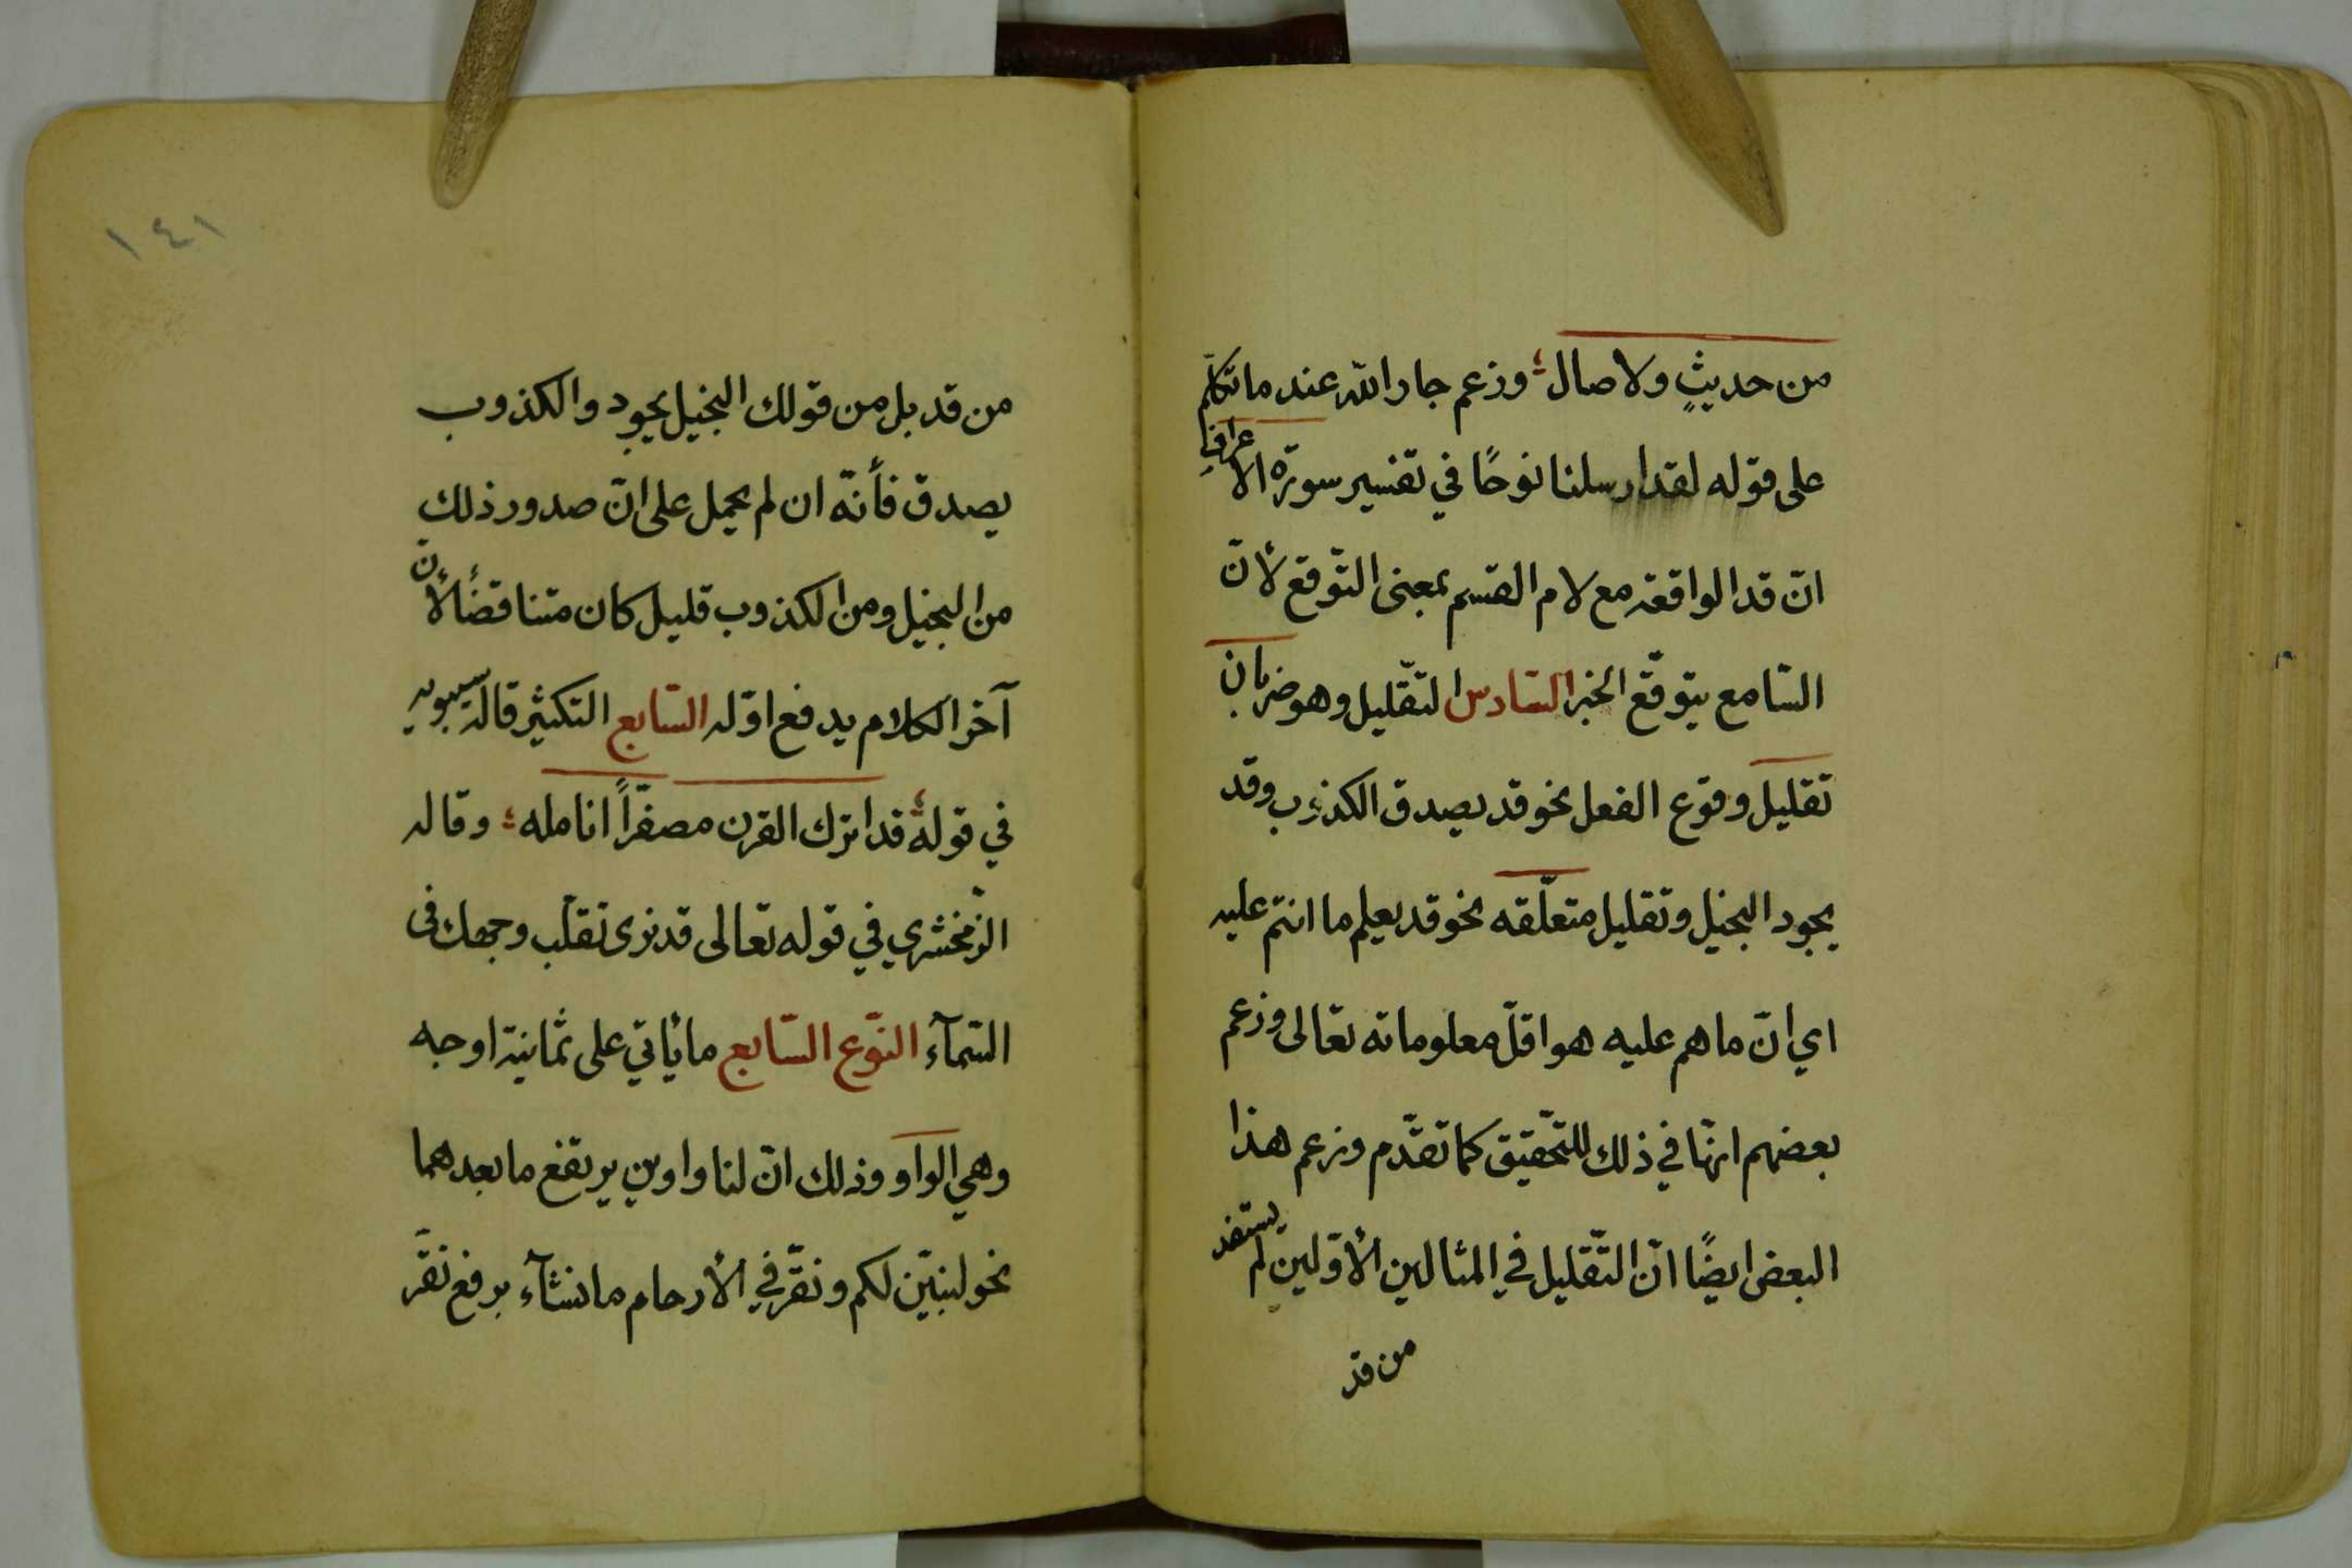 من حديثٍ ولا صال ؛ وزعم جار الله عند ما تكلّم
على قوله لقد ارسلنا نوحًا في تفسير سورة الاعراف
انّ قد الواقعة مع لام القسم بمعنى التّوقع لأنّ
السّامع يتوقّع الخبر السّادس التّقليل وهو ضربان
تقليل وقوع الفعل نحو قد يصدق الكذوب وقد
يجود البخيل وتقليل متعلّقه نحو قد يعلم ما انتم عليه
اي انّ ما هم عليه هو اقلّ معلوماته تعالى وزعم
بعضهم انّها في ذلك للتّحقيق كما تقدّم وزعم هذا
البعض ايضًا انّ التّقليل في المثالين الأوّلين لم يستفد
من قد
١٤١
من قد بل من قولك البخيل يجود والكذوب
يصدق فأنّه ان لم يحمل على انّ صدور ذلك
من البخيل ومن الكذوب قليل كان متناقضًا لأنّ
آخر الكلام يدفع اوّله السّابع التكثير قاله سيبويه
في قوله ؛ قد اترك القرن مصفرّاً انامله ؛ وقاله
الزّمخشري في قوله تعالى قد نرى تقلّب وجهك فى
السّمآء النّوع السّابع ما يأتي على ثمانية اوجه
وهي الواو وذلك انّ لنا واوين يرتفع ما بعدهما
نحو لنبيّن لكم ونقرّ في الأرحام ما نشآء برفع نقرّ